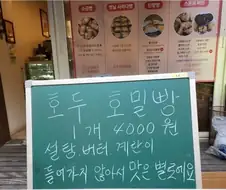 호두 호밀빵
1개 4000원
설탕.버터 계란이
들어가지 않아서 맛은 별로에요